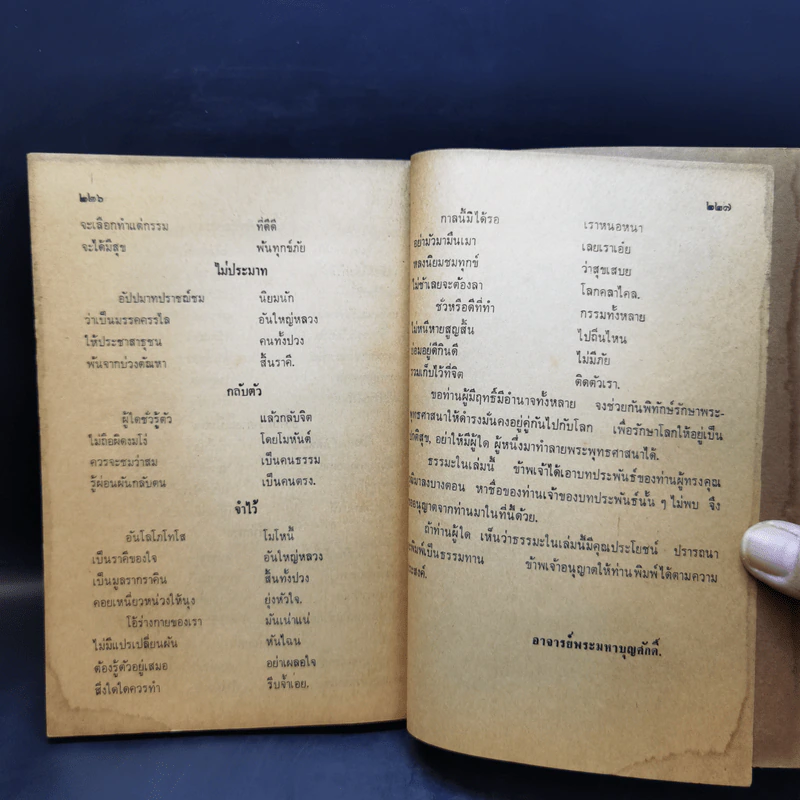 ๒๒๖
จะเลือกทำแต่กรรม ที่ดีดี
จะได้มีสุข พ้นทุกข์ภัย
ไม่ประมาท
อัปปมาทปราชญ์ชม นิยมนัก
ว่าเป็นมรรคครรไล อันใหญ่หลวง
ให้ประชาสาธุชน คนทั้งปวง
พ้นจากบ่วงตัณหา สิ้นราคี.
กลับตัว
ผู้ใดชั่วรู้ตัว แล้วกลับจิต
ไม่ถือผิดงมโง่ โดยโมหันต์
ควรจะชมว่าสม เป็นคนธรรม
รู้ผ่อนผันกลับตน เป็นคนตรง.
จำไว้
อันโลโภโทโส โมโหนี้
เป็นราคีของใจ อันใหญ่หลวง
เป็นมูลรากราคิน สิ้นทั้งปวง
คอยเหนี่ยวหน่วงให้นุง ยุ่งหัวใจ.
โอ้ร่างกายของเรา มันเน่าแน่
ไม่มีแปรเปลี่ยนผัน หันไฉน
ต้องรู้ตัวอยู่เสมอ อย่าเผลอใจ
สิ่งใดใดควรทำ รีบจ้ำเอย.
๒๒๗
กาลนี้มิได้รอ เราหนอหนา
อย่ามัวมามึนเมา เลยเราเอ๋ย
หลงนิยมชมทุกข์ ว่าสุขเสบย
ไม่ช้าเลยจะต้องลา โลกคลาไคล.
ชั่วหรือดีที่ทำ กรรมทั้งหลาย
ไม่หนีหายสูญสิ้น ไปถิ่นไหน
ย่อมอยู่ดีกินดี ไม่มีภัย
รวมเก็บไว้ที่จิต ติดตัวเรา.
ขอท่านผู้มีฤทธิ์มีอำนาจทั้งหลาย จงช่วยกันพิทักษ์รักษาพระ-
พุทธศาสนาให้ดำรงมั่นคงอยู่คู่กันไปกับโลก เพื่อรักษาโลกให้อยู่เป็น
ปกติสุข, อย่าให้มีผู้ใด ผู้หนึ่งมาทำลายพระพุทธศาสนาได้.
ธรรมะในเล่มนี้ ข้าพเจ้าได้เอาบทประพันธ์ของท่านผู้ทรงคุณ
วุฒิมาลงบางตอน หาชื่อของท่านเจ้าของบทประพันธ์นั้น ๆ ไม่พบ จึง
ขออนุญาตจากท่านมาในที่นี้ด้วย.
ถ้าท่านผู้ใด เห็นว่าธรรมะในเล่มนี้มีคุณประโยชน์ ปรารถนา
พิมพ์เป็นธรรมทาน ข้าพเจ้าอนุญาตให้ท่านพิมพ์ได้ตามความ
ประสงค์.
อาจารย์พระมหาบุญศักดิ์.